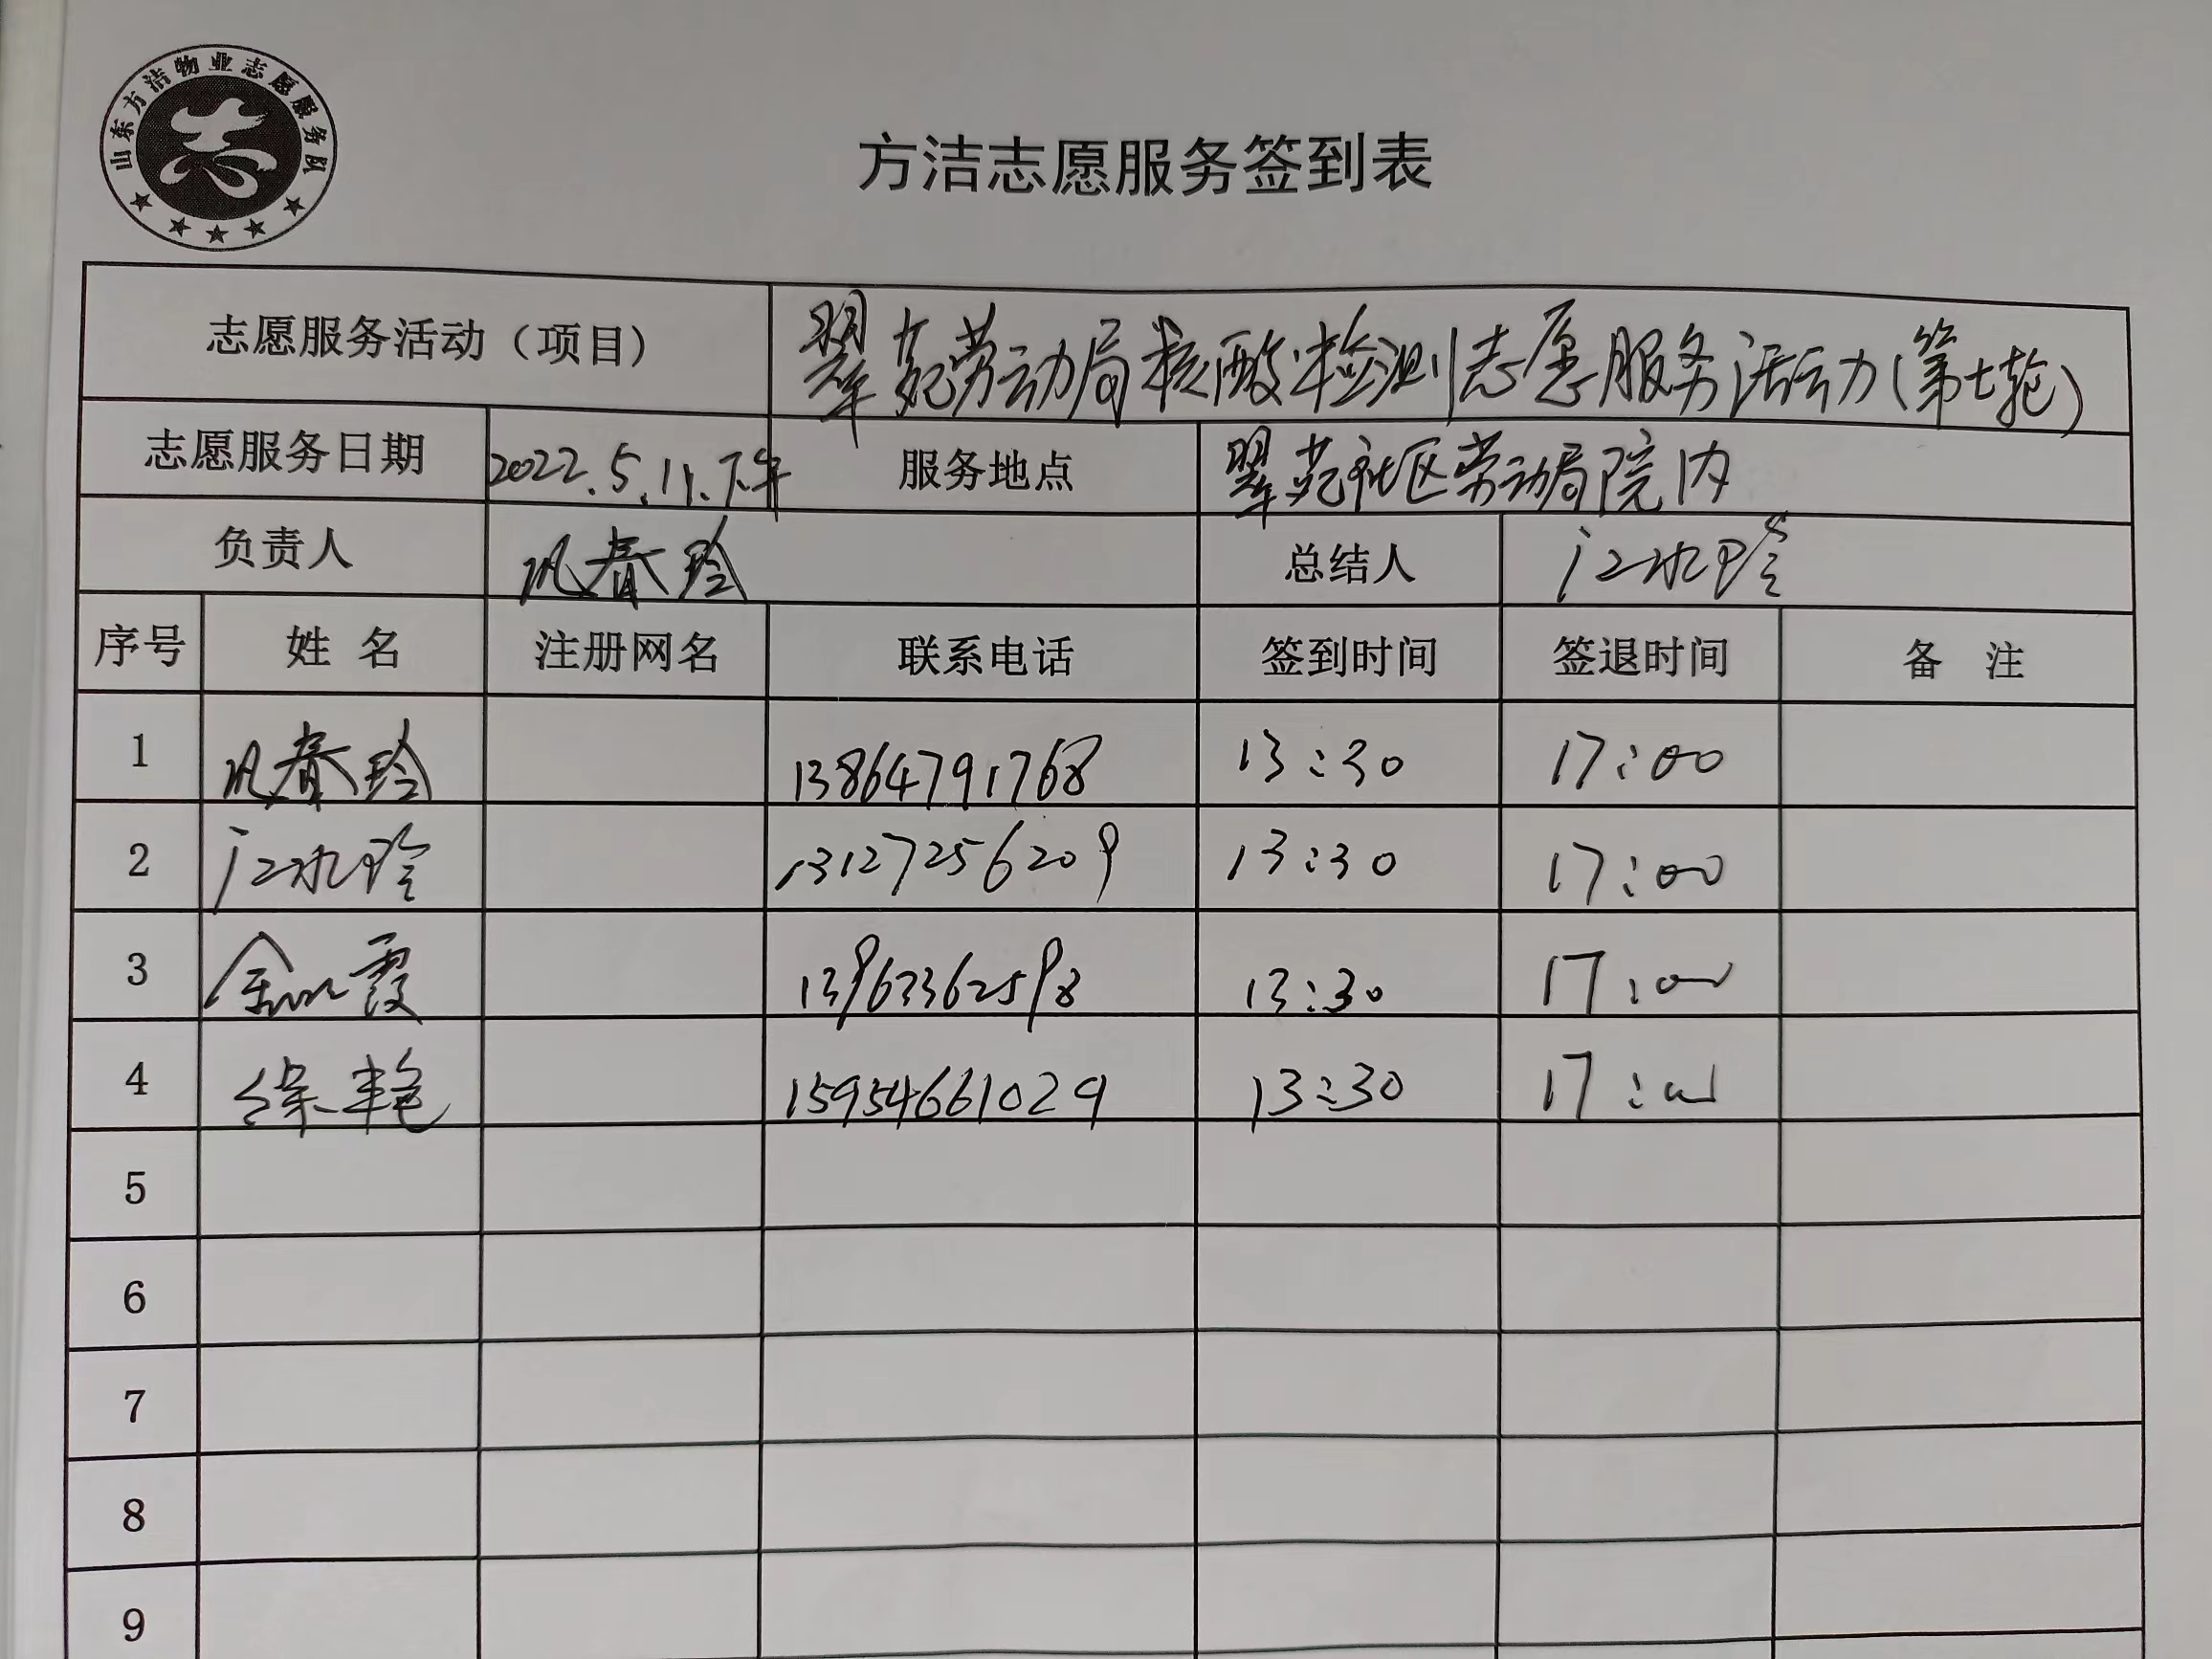 山东方洁物业志愿服务队
方洁志愿服务签到表
志愿服务活动（项目） 翠苑劳动局核酸检测志愿服务活动(第七轮)
志愿服务日期 2022.5.11.下午 服务地点 翠苑社区劳动局院内
负责人 巩春玲 总结人 江水玲
序号 姓 名 注册网名 联系电话 签到时间 签退时间 备 注
1 巩春玲 13864791768 13:30 17:00
2 江水玲 13127256209 13:30 17:00
3 13963362598 13:30 17:00
4 徐艳 15954661029 13:30 17:00
5
6
7
8
9